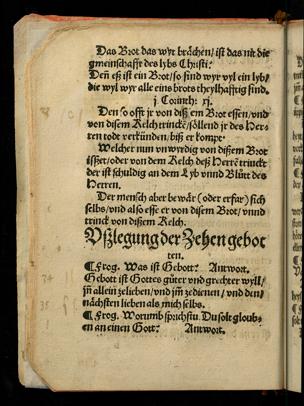 Das Brot das wyr brächen/ ist das nit die
gmeinschafft des lybs Christi:
Deñ eß ist ein Brot/ so sind wyr vyl ein lyb/
die wyl wyr alle eins brots theylhafftig sind.
j Corinth: xj.
Den so offt jr von diß em Brot essen/ vnd
von disem Kelch trinckẽ/ söllend jr des Her-
ren todt verkünden/ biß er kompt.
Welcher nun vnwyrdig von dißem Brot
ißset/ oder von dem Kelch deß Herrẽ trinckt
der ist schuldig an dem Lyb vnnd Blůtt des
Herren.
Der mensch aber bewär (oder erfar) sich
selbs/ vnd also esse er von disem Brot/ vnnd
trinck von dißem Kelch.
Vßlegung der Zehen gebot
ten.
¶ Frog. Was ist Gebott? Antwort.
Gebott ist Gottes gůter vnd grechter wyll/
jm̃ allein zelieben/ vnd jm̃ zedienen/ vnd den
nächsten lieben als mich selbs.
¶ Frog. Worumb sprichstu. Du solt gloub-
en an einen Gott: Antwort.